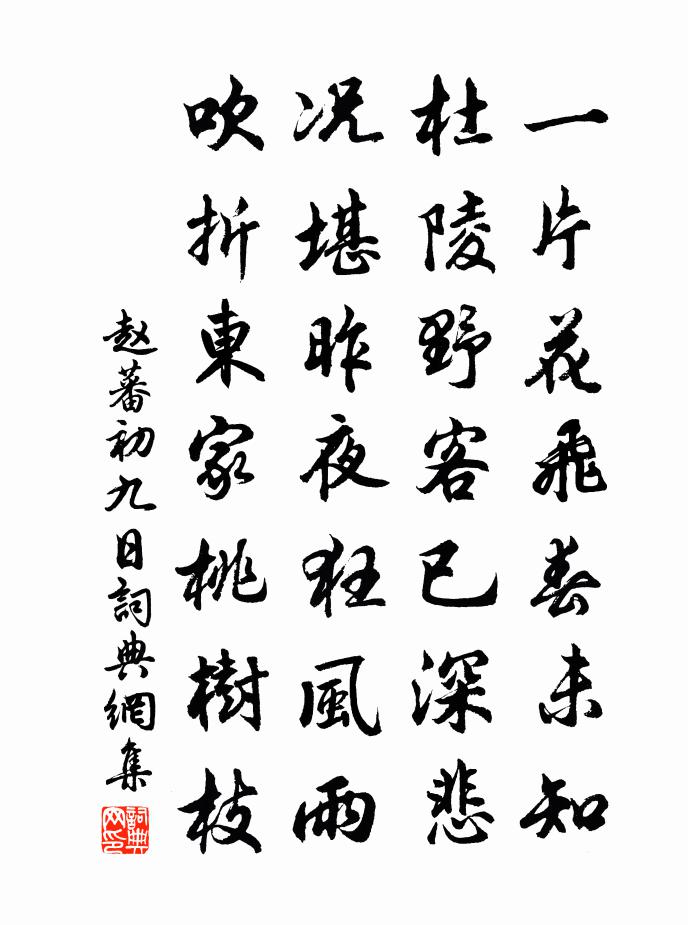 一片花飛春未知
杜陵野客已深悲
况堪昨夜狂風雨
吹折東家桃樹枝
赵蕃初九日詞典網集
詞典網印